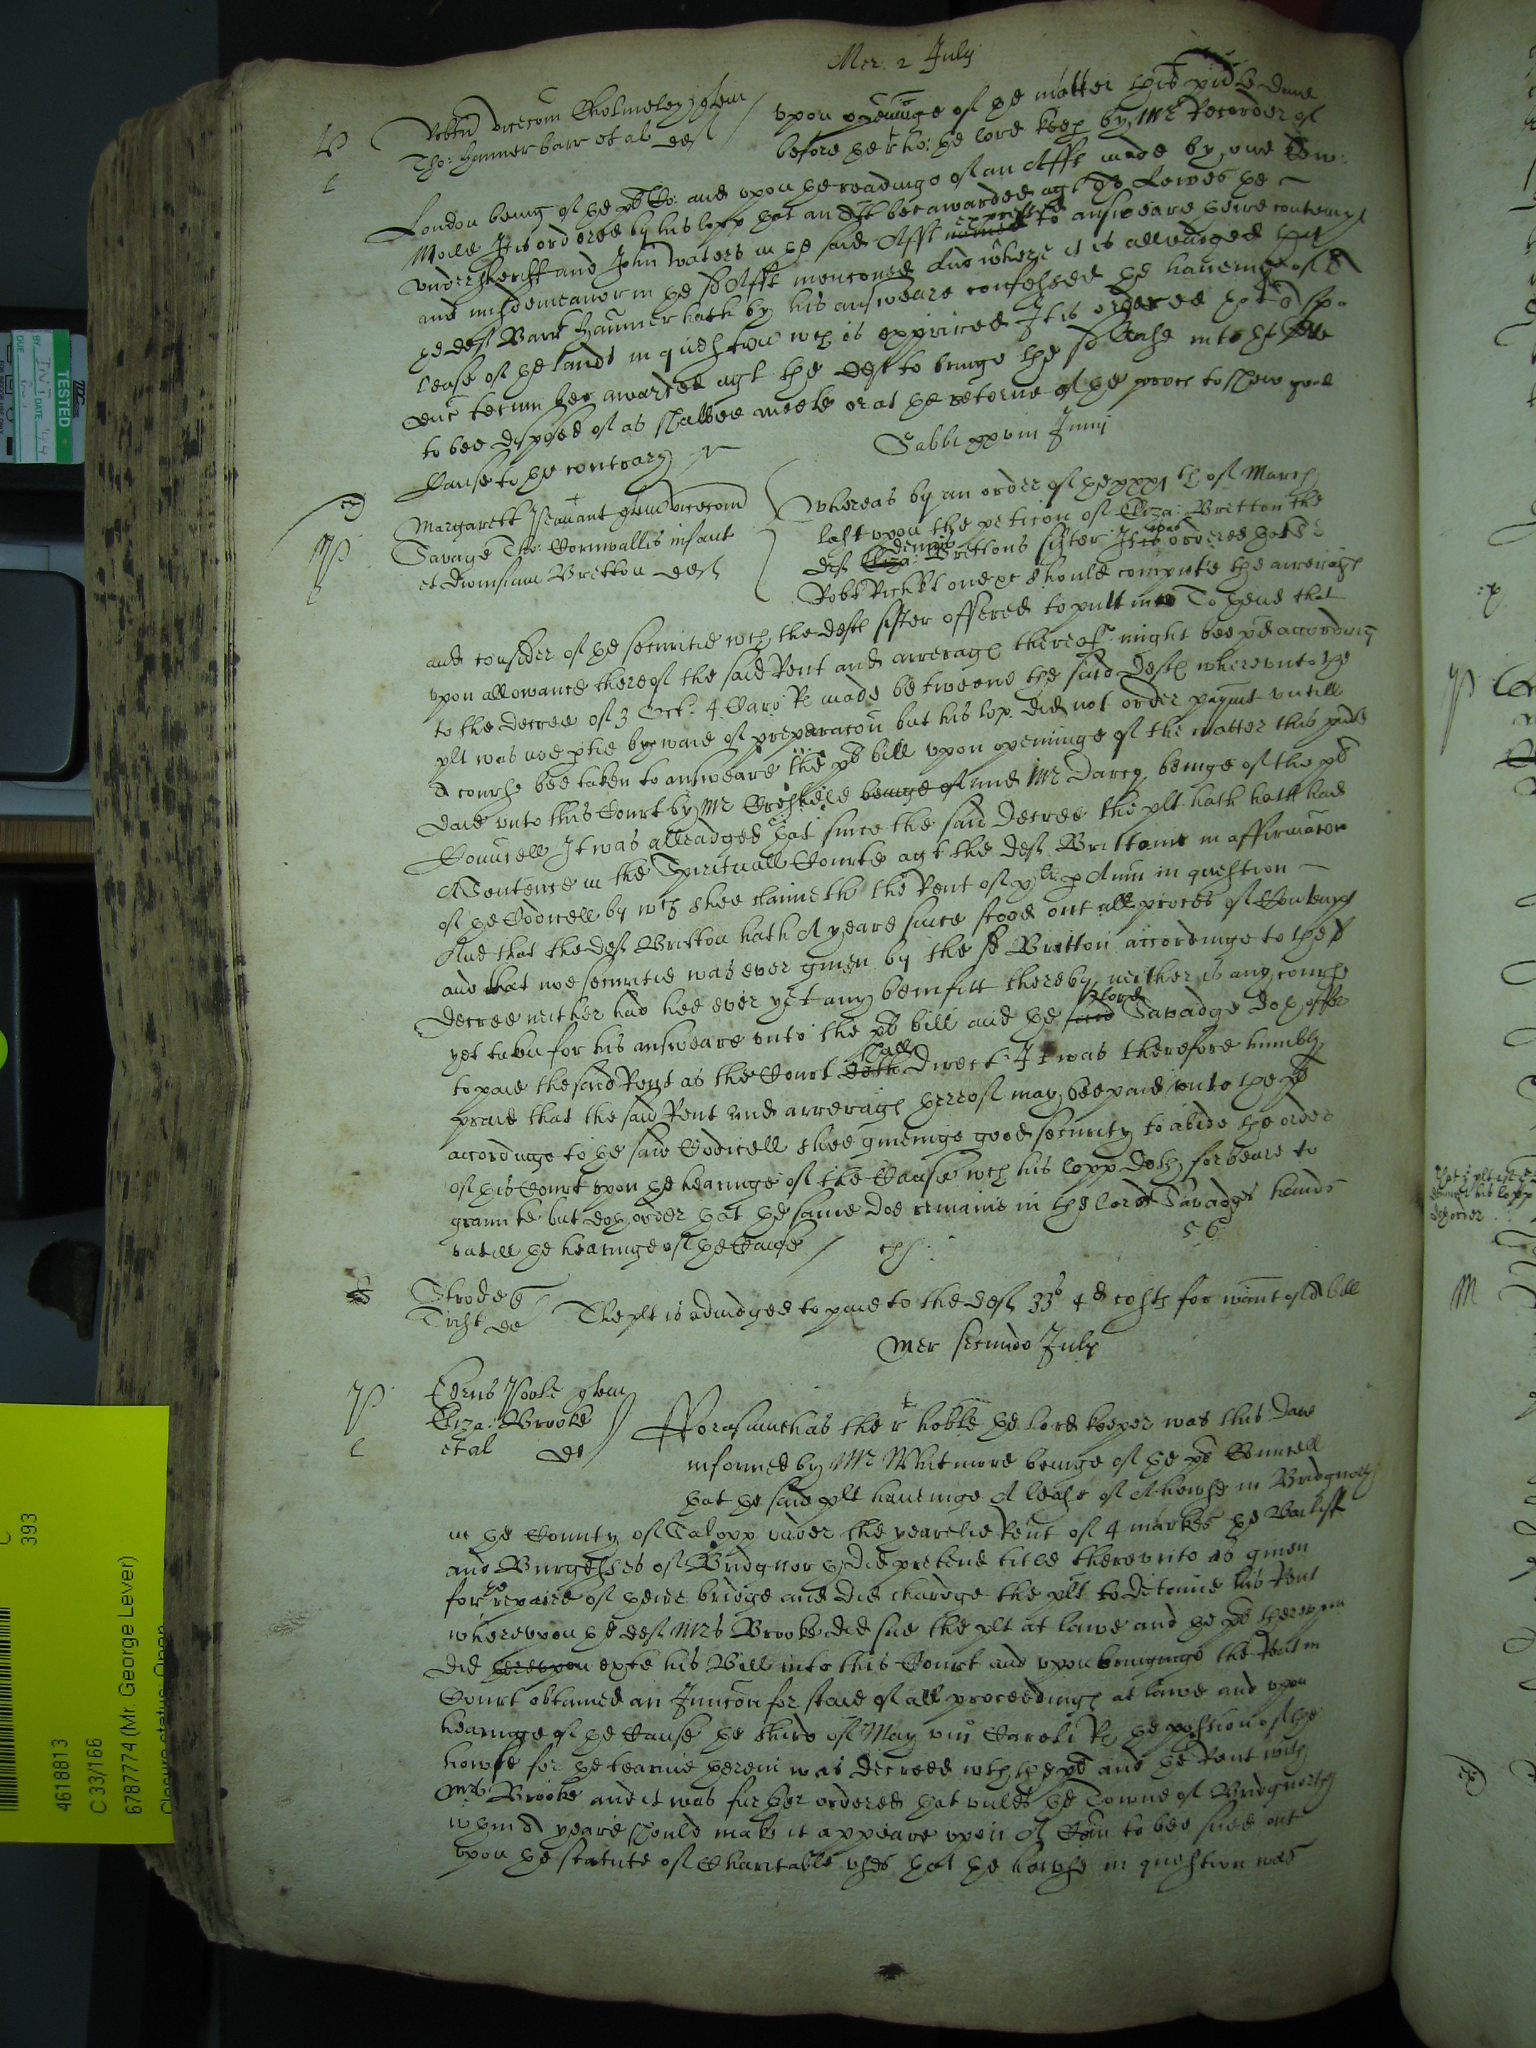 Mer. 2 July
Robtus vicecom Cholmeley quer
Tho: Hanmer barr et al def
upon openinge of the matter this pnte daie
before the r. ho: the lord keep by Mr Recorder of
London being of the pl Co: and upon the readinge of an Afft made by one
It is ordered by his lopp that an Att bee awarded agt Lewes the
undersheriff and John Waters in the said Afft expressed to answeare theire contempt
and misdemeanor in the sd Afft menconed And where it is alleadged that
the def Barrt Hanmer hath by his answeare confessed the haveing of a
lease of the lands in question wch is expired It is ordered that a spa
duc tecum bee awarded agt the def to bringe the sd lease into
to bee disposed of as shalbee meete or at the retorne of the proces to shew good
Cause to the contrary
Sabbi xxviii Junij
Margarett quer vicecom
Savage Tho: Cornwallis infant
et Dionisiam Britton def
Whereas by an order of the xxxith of March
last upon the peticon of Eliza: Britton the
def Eliza: dennis Brittons sister It is was ordered that Sr
Robt Rich Kt one etc should compute the arrerages
and consider of the securitie wch the defts sister offered to putt in To thend that
upon allowance thereof the said Rent and arrerages thereof might bee pd according
to the decree of 3 Octr. 4 Caro R made betweene the said defts whereunto the
plt was noe ptie by waie of preparacon but his lop. did not order paymt untill
a course bee taken to answeare the pl bill upon openinge of the matter this pnte
daie unto this Court by Mr beinge of and Mr Darcy beinge of the pl
Councell It was alleadged that since the said decree the plt hath hath had
A Sentence in the Spirituall Courte agt the def Brittaine in affirmacon
of the Codicell by wch shee claimeth the Rent of xli p Ann in question
And that the def Britton hath A yeare since stood out all proces of Contempt
and that noe securitie was ever given by the sd Britton accordinge to the sd
decree neither had hee ever yet any benifitt thereby neither is any course
yet taken for his answeare unto the pl bill and the said lord Savadge doth offer
to paie the said Rent as the Court doth shall direct. It was therefore humbly
praied that the said Rent and arrerages thereof may bee paid unto the pl
accordinge to the said Codicell shee giveinge good security to abide the order
of this Court upon the hearinge of the Cause wch his lopp doth forbeare to
graunte but doth order that the same doe remaine in the lord Savadges hands
untill the hearinge of the Cause
56
Strode q
Tirst de
The plt is adiudged to paie to the def 33s 4d costs for want of a bill
Mer secundo July
Edrus Poole quer
Eliza: Brooke
et al de
Fforasmuch as the rt hoble the lord keeper was this daie
informed by Mr Whitmore beinge of the pl Councell
that the said plt haveinge A lease of A howse in Bridgnorth
in the County of Salopp under the yearelie Rent of 4 markes the Bailiff
and Burgesses of Bridgnorth did pretend title thereunto as given
for the repaire of theire bridge and did chardge the plt to deteine his Rent
whereupon the def Mrs Brooke did sue the plt at lawe and the pl thereupon
did thereupon exhte his Bill into this Court and upon bringinge the Rent in
Court obtained an Iniuncon for staie of all proceedings at lawe and upon
hearinge of the Cause the third of May viii Caroli R the possession of the
howse for the tearme therein was decreed wth the pl and the Rent with
Mrs Brooke and it was further ordered that unles the Towne of Bridgnorth
within A yeare should make it appeare upon A Com to bee sued out
upon the statute of Charitable uses that the howse in question was
That plt
his lopp
doth order
TESTED
INIT DATE
BY
DUE
C
393
4618813
C 33/166
6787774 (Mr. George Lever)
Closure status: Open